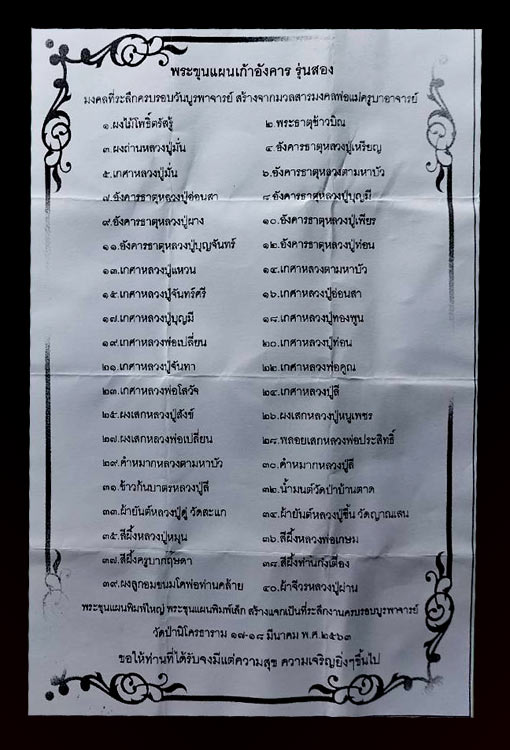 พระขุนแผนเก้าอังคาร รุ่นสอง
มงคลที่ระลึกครบรอบวันบูรพาจารย์ สร้างจากมวลสารมงคลพ่อแม่ครูบาอาจารย์
๑.ผงไม้โพธิ์ตรัสรู้ ๒.พระธาตุข้าวบิณ
๓.ผงถ่านหลวงปู่มั่น ๔.อังคารธาตุหลวงปู่เหรียญ
๕.เกศาหลวงปู่มั่น ๖.อังคารธาตุหลวงตามหาบัว
๗.อังคารธาตุหลวงปู่อ่อนสา ๘.อังคารธาตุหลวงปู่บุญมี
๙.อังคารธาตุหลวงปู่ผาง ๑๐.อังคารธาตุหลวงปู่เพียร
๑๑.อังคารธาตุหลวงปู่บุญจันทร์ ๑๒.อังคารธาตุหลวงปู่ท่อน
๑๓.เกศาหลวงปู่แหวน ๑๔.เกศาหลวงตามหาบัว
๑๕.เกศาหลวงปู่จันทร์ศรี ๑๖.เกศาหลวงปู่อ่อนสา
๑๗.เกศาหลวงปู่บุญมี ๑๘.เกศาหลวงปู่ทองพูน
๑๙.เกศาหลวงพ่อเปลี่ยน ๒๐.เกศาหลวงปู่ท่อน
๒๑.เกศาหลวงปู่จันทา ๒๒.เกศาหลวงพ่อคูณ
๒๓.เกศาหลวงพ่อโสวัจ ๒๔.เกศาหลวงปู่ลี
๒๕.ผงเสกหลวงปู่สังข์ ๒๖.ผงเสกหลวงปู่หนูเพชร
๒๗.ผงเสกหลวงพ่อเปลี่ยน ๒๘.พลอยเสกหลวงพ่อประสิทธิ์
๒๙.คำหมากหลวงตามหาบัว ๓๐.คำหมากหลวงปู่ลี
๓๑.ข้าวก้นบาตรหลวงปู่ลี ๓๒.น้ำมนต์วัดป่าบ้านตาด
๓๓.ผ้ายันต์หลวงปู่ดู่ วัดสะแก ๓๔.ผ้ายันต์หลวงปู่ชื้น วัดญาณเสน
๓๕.สีผึ้งหลวงปู่หมุน ๓๖.สีผึ้งหลวงพ่อเกษม
๓๗.สีผึ้งครูบากฤษดา ๓๘.สีผึ้งท่านกังเตือง
๓๙.ผงลูกอมขนมโคพ่อท่านคล้าย ๔๐.ผ้าจีวรหลวงปู่ผ่าน
พระขุนแผนพิมพ์ใหญ่ พระขุนแผนพิมพ์เล็ก สร้างแจกเป็นที่ระลึกงานครบรอบบูรพาจารย์
วัดป่านิโครธาราม ๑๗-๑๘ มีนาคม พ.ศ.๒๕๖๓
ขอให้ท่านที่ได้รับจงมีแต่ความสุข ความเจริญยิ่งๆขึ้นไป